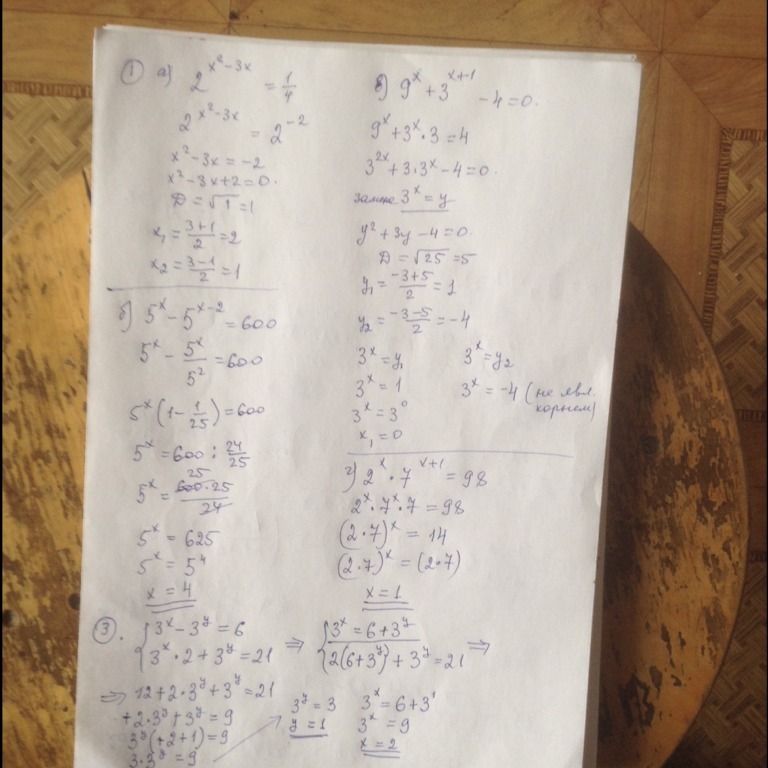 ① а) 2^(x²-3x) = 1/4
2^(x²-3x) = 2^(-2)
x²-3x = -2
x²-3x+2=0.
D = √1 = 1
x₁ = (3+1)/2 = 2
x₂ = (3-1)/2 = 1
б) 5^x - 5^(x-2) = 600
5^x - 5^x/5² = 600
5^x(1 - 1/25) = 600
5^x = 600 : 24/25
5^x = 600·25/24
25
5^x = 625
5^x = 5⁴
x = 4
в) 9^x + 3^(x+1) - 4 = 0.
9^x + 3^x·3 = 4
3^(2x) + 3·3^x - 4 = 0.
замена 3^x = y
y² + 3y - 4 = 0.
D = √25 = 5
y₁ = (-3+5)/2 = 1
y₂ = (-3-5)/2 = -4
3^x = y₁ 3^x = y₂
3^x = 1 3^x = -4 (не явл.
корнем)
3^x = 3⁰
x₁ = 0
г) 2^x · 7^(x+1) = 98
2^x · 7^x · 7 = 98
(2·7)^x = 14
(2·7)^x = (2·7)
x = 1
③. { 3^x - 3^y = 6 ⇒ { 3^x = 6 + 3^y
3^x·2 + 3^y = 21 2(6+3^y) + 3^y = 21 ⇒
⇒ 12 + 2·3^y + 3^y = 21
+2·3^y + 3^y = 9
3^y(+2+1) = 9
3·3^y = 9
3^y = 3
y = 1
3^x = 6 + 3¹
3^x = 9
x = 2